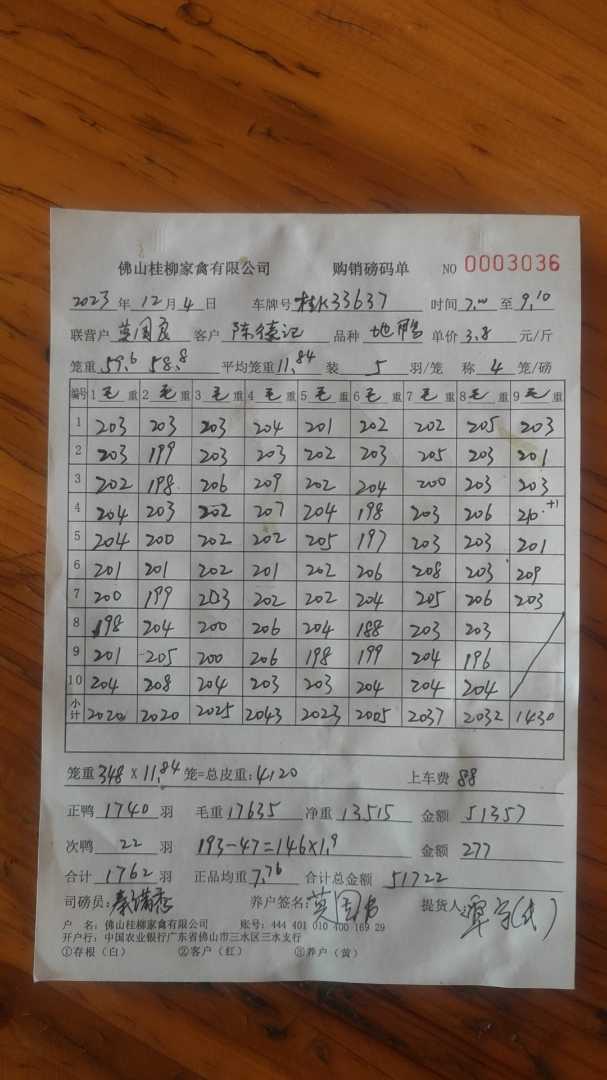 佛山桂柳家禽有限公司 购销磅码单 NO 0003036
2023年12月4日 车牌号 桂K33637 时间7.00至9.10
联营户 莫周良 客户 陈德记 品种 地鸭 单价3.8元/斤
笼重59.6 58.8 平均笼重11.84 装5羽/笼 称4笼/磅
编号 1毛重 2毛重 3毛重 4毛重 5毛重 6毛重 7毛重 8毛重 9毛重
1 203 203 203 204 201 202 202 205 203
2 203 199 203 203 202 203 205 203 201
3 202 198 206 209 202 204 200 203 203
4 204 203 202 207 204 198 203 206 210+1
5 204 200 202 202 205 197 203 203 201
6 201 201 202 201 202 206 208 203 209
7 200 199 203 202 202 204 205 206 203
8 198 204 200 206 204 188 203 203
9 201 205 200 206 198 199 204 196
10 204 208 204 203 203 204 204 204
小计 2020 2020 2025 2043 2023 2005 2037 2032 1430
笼重348×11.84笼=总皮重:4120 上车费 88
正鸭1740羽 毛重17635 净重13515 金额51357
次鸭22羽 193-47=146×1.9 金额277
合计1762羽 正品均重7.76 合计总金额51722
司磅员: 养户签名: 提货人:
户 名:佛山桂柳家禽有限公司 账号:444 401 010 400 169 29
开户行:中国农业银行广东省佛山市三水区三水支行
①存根(白) ②客户(红) ③养户(黄)